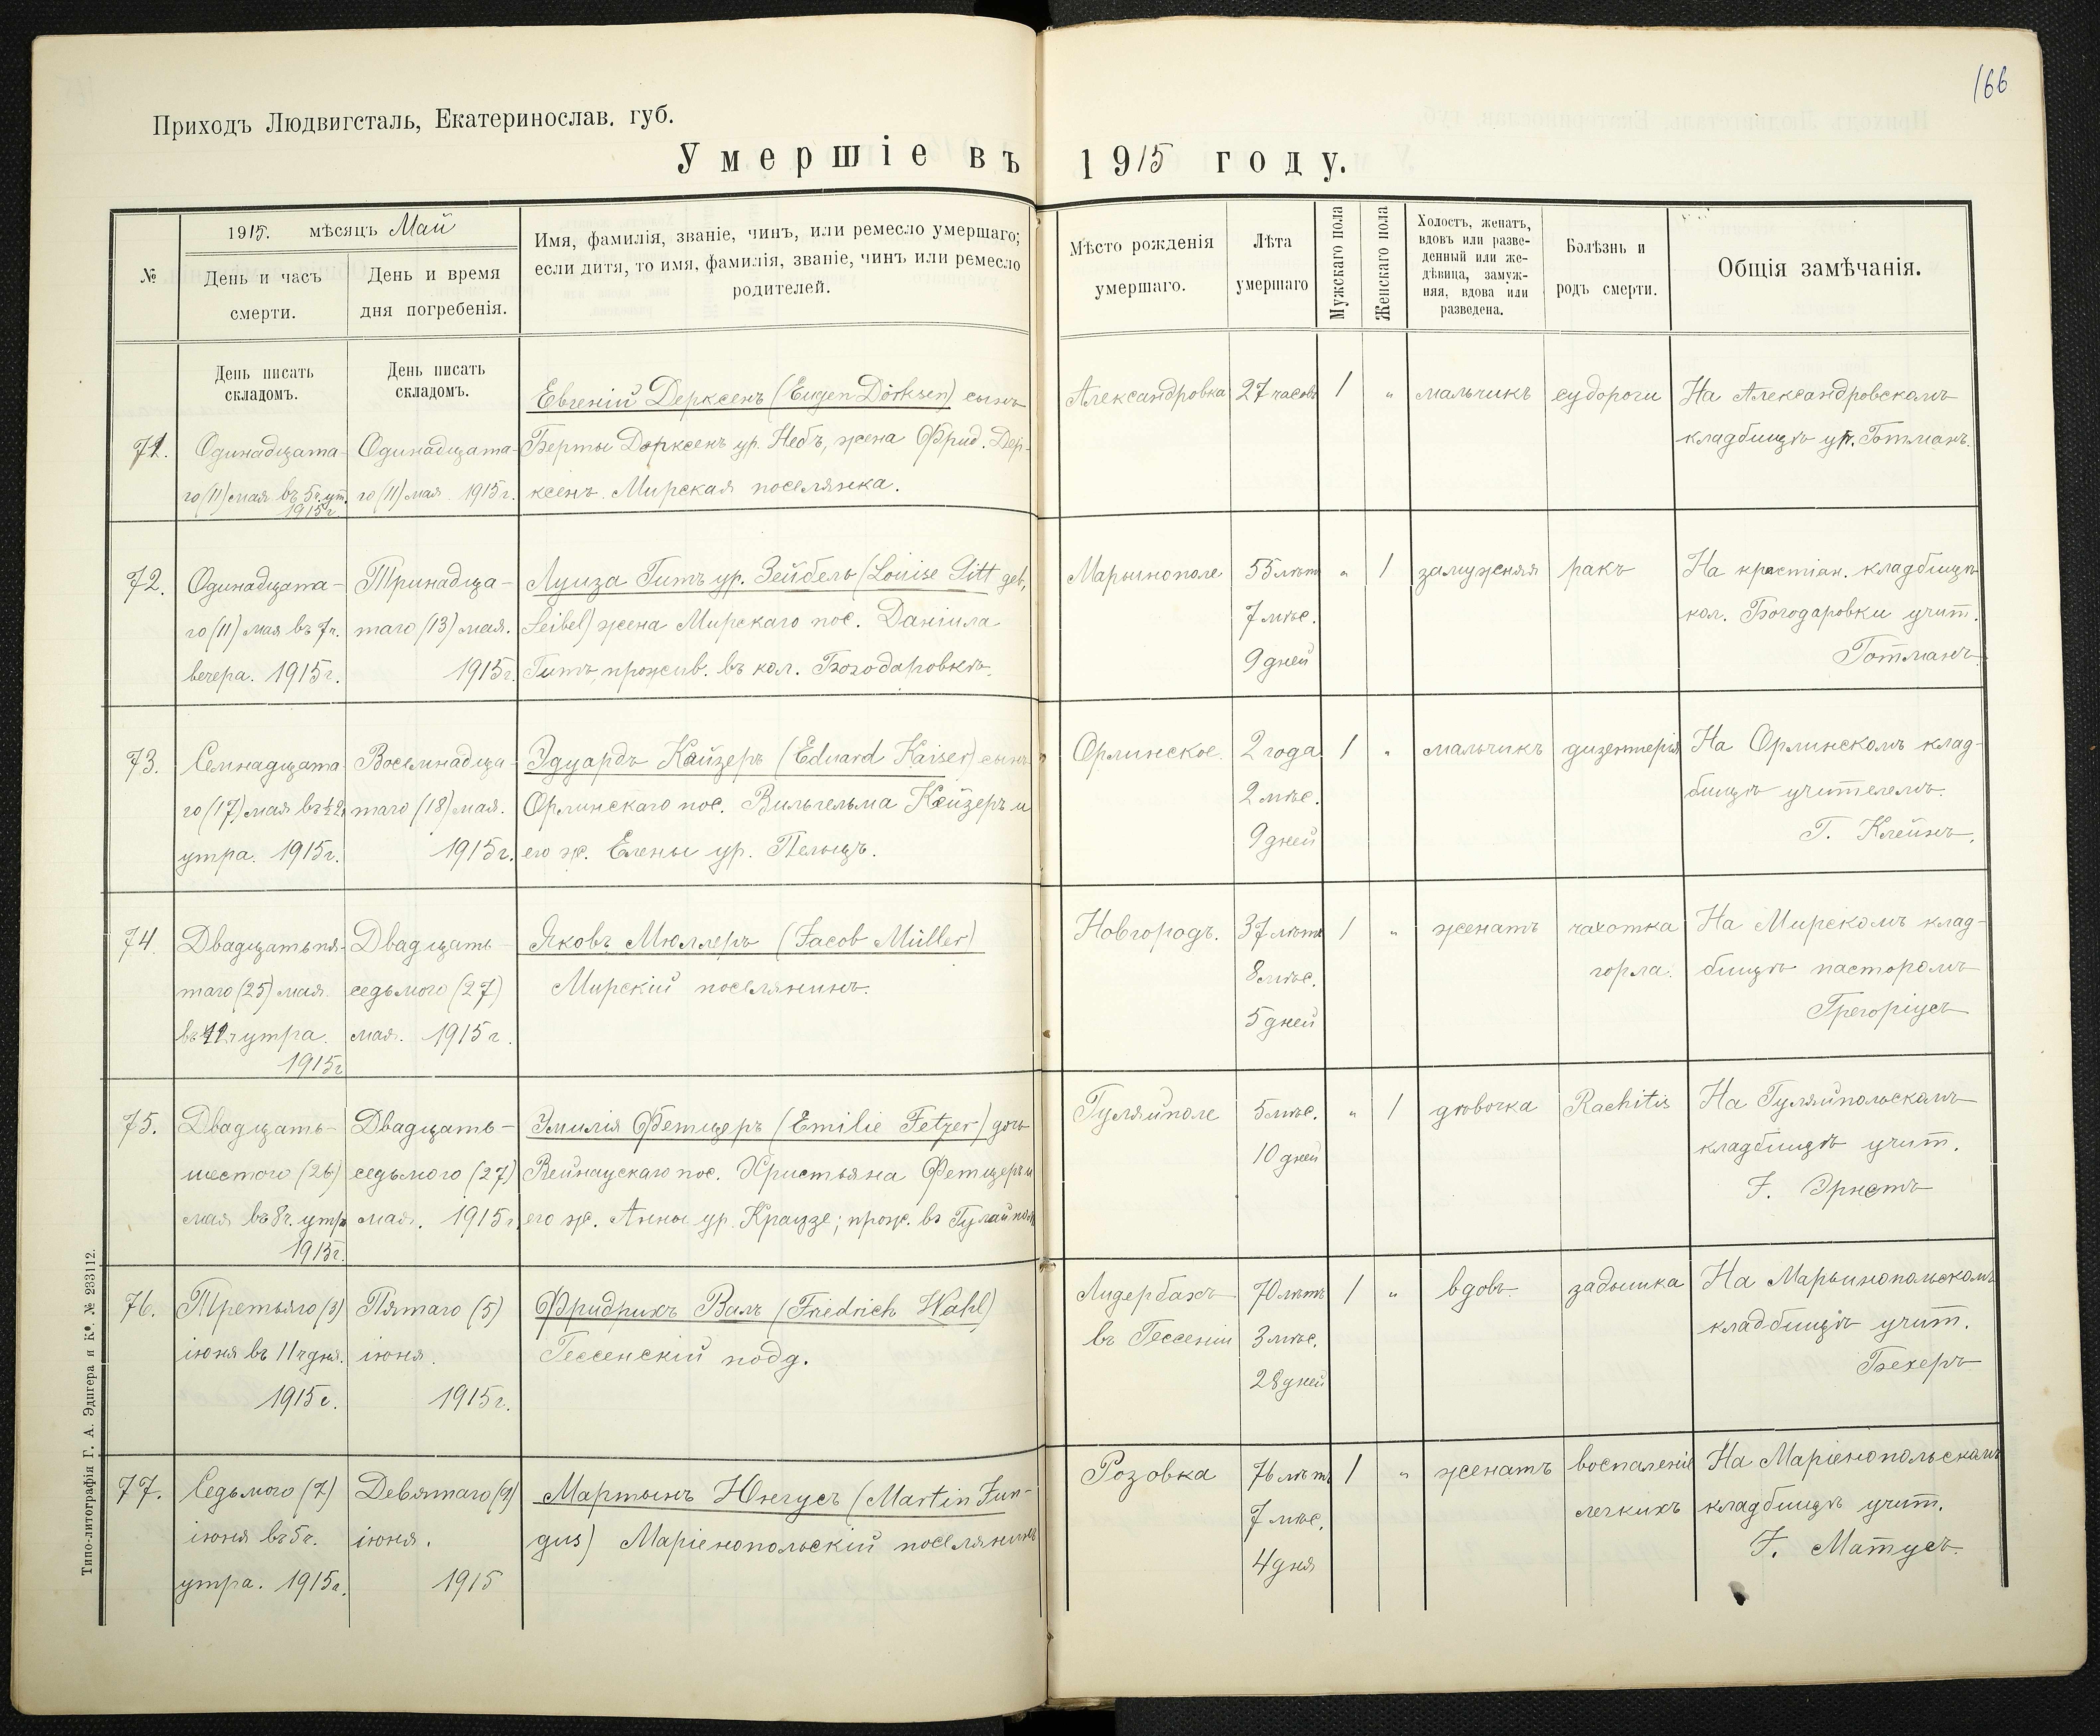 166
Приходъ Людвигсталь, Екатеринослав. губ.
Умершіе въ 1915 году.
№
1915. мѣсяцъ Май
День и часъ
смерти.
День и время
дня погребенія.
Имя, фамилія, званіе, чинъ, или ремесло умершаго;
если дитя, то имя, фамилія, званіе, чинъ или ремесло
родителей.
Мѣсто рожденія
умершаго.
Лѣта
умершаго
Мужскаго пола
Женскаго пола
Холостъ, женатъ,
вдовъ или разве-
денный или же-
дѣвица, замуж-
няя, вдова или
разведена.
Болѣзнь и
родъ смерти.
Общія замѣчанія.
День писать
складомъ.
День писать
складомъ.
71.
Одинадцата-
го (11) мая въ 5ч. ут.
1915г.
Одинадцата-
го (11) мая 1915г.
Евгеній Дерксенъ (Eugen Dörksen) сынъ
Берты Дэрксенъ ур. Небъ, жена Фрид. Дер-
ксенъ. Мирская поселянка.
Александровка
27 часовъ
1
"
мальчикъ
судороги
На Александровскомъ
кладбищѣ уч. Готманъ.
72.
Одинадцата-
го (11) мая въ 7ч.
вечера. 1915г.
Тринадца-
таго (13) мая.
1915г.
Луиза Гитъ ур. Зейбель (Louise Gitt geb.
Seibel) жена Мирскаго пос. Даніила
Гитъ, прожив. въ кол. Богодаровкѣ.
Марьинополе
55 лѣтъ
7 мѣс.
9 дней
"
1
замужняя
ракъ
На крестіан. кладбищѣ
кол. Богодаровки учит.
Готманъ.
73.
Семнадцата
го (17) мая въ ½ 2ч
утра. 1915г.
Восемнадца-
таго (18) мая.
1915г.
Эдуардъ Кайзеръ (Eduard Kaiser) сынъ
Орлинскаго пос. Вильгельма Кейзеръ и
его ж. Елены ур. Пельцъ.
Орлинское.
2 года
2 мѣс.
9 дней
1
"
мальчикъ
дизентерія
На Орлинскомъ клад-
бищѣ учителемъ.
Г. Клейнъ.
74.
Двадцатьпя-
таго (25) мая
утра.
1915г
Двадцать-
седьмого (27)
мая. 1915г.
Яковъ Мюллеръ (Jacob Müller)
Мирскій поселянинъ.
Новгородъ.
37 лѣтъ
8 мѣс.
5 дней
1
"
женатъ
чахотка
горла.
На Мирскомъ клад-
бищѣ пасторомъ
Грегоріусъ
75.
Двадцать-
шестого (26)
мая въ 8ч. утра
1915г.
Двадцать-
седьмого (27)
мая. 1915г.
Эмилія Фетцеръ (Emilie Fetzer) дочь
Вейнаускаго пос. Христьяна Фетцеръ и
его ж. Анны ур. Краузе; прож. въ Гуляйполѣ
Гуляйполе
5 мѣс.
10 дней
"
1
дѣвочка
Rachitis
На Гуляйпольскомъ
кладбищѣ учит.
F. Эрнстъ
76.
Третьяго (3)
іюня въ 11ч дня.
1915г.
Пятаго (5)
іюня.
1915г.
Фридрихъ Валъ (Friedrich Wahl)
Гессенскій подд.
Лидербахъ
въ Гессеніи
70 лѣтъ
3 мѣс.
28 дней
1
"
вдовъ
задышка
На Марьинопольскомъ
кладбищѣ учит.
Бехеръ
77.
Седьмого (7)
іюня въ 5ч.
утра. 1915г.
Девятаго (9)
іюня.
1915
Мартынъ Юнгусъ (Martin Jun-
gus) Маріенопольскій поселянинъ
Розовка
76 лѣтъ
7 мѣс.
4 дня
1
"
женатъ
воспаленіе
легкихъ
На Маріенопольскомъ
кладбищѣ учит.
F. Матусъ.
Типо-литографія Г. А. Эдигера и К°. № 233112.